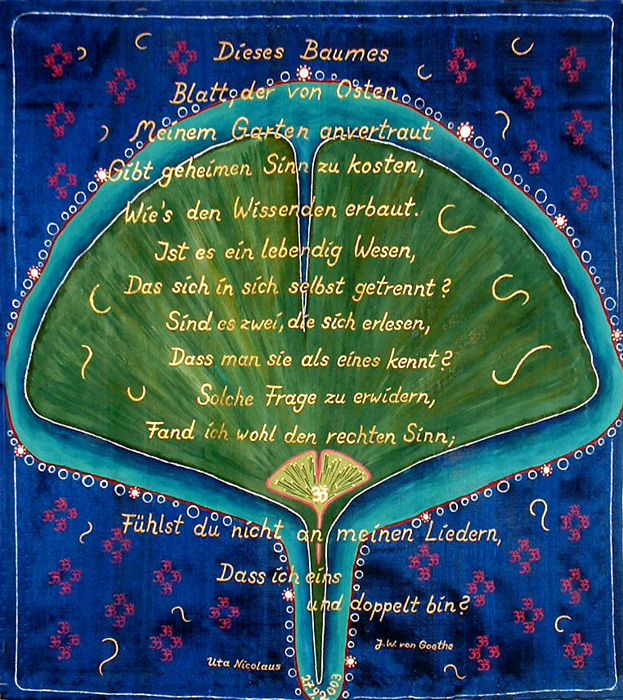 Dieses Baumes
Blatt, der von Osten
Meinem Garten anvertraut
Gibt geheimen Sinn zu kosten,
Wie's den Wissenden erbaut.
Ist es ein lebendig Wesen,
Das sich in sich selbst getrennt?
Sind es zwei, die sich erlesen,
Dass man sie als eines kennt?
Solche Frage zu erwidern,
Fand ich wohl den rechten Sinn;
Fühlst du nicht an meinen Liedern,
Dass ich eins
und doppelt bin?
J.W. von Goethe
Uta Nicolaus